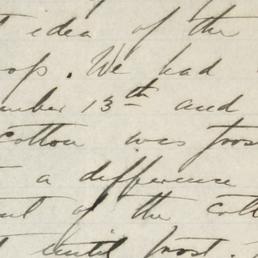 idea of the
op. We had
mber 13th and
cotton was fros
a difference
of the cott
until frost.